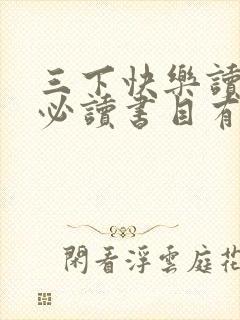 三下快樂讀
必讀書目有
閑看浮雲庭花